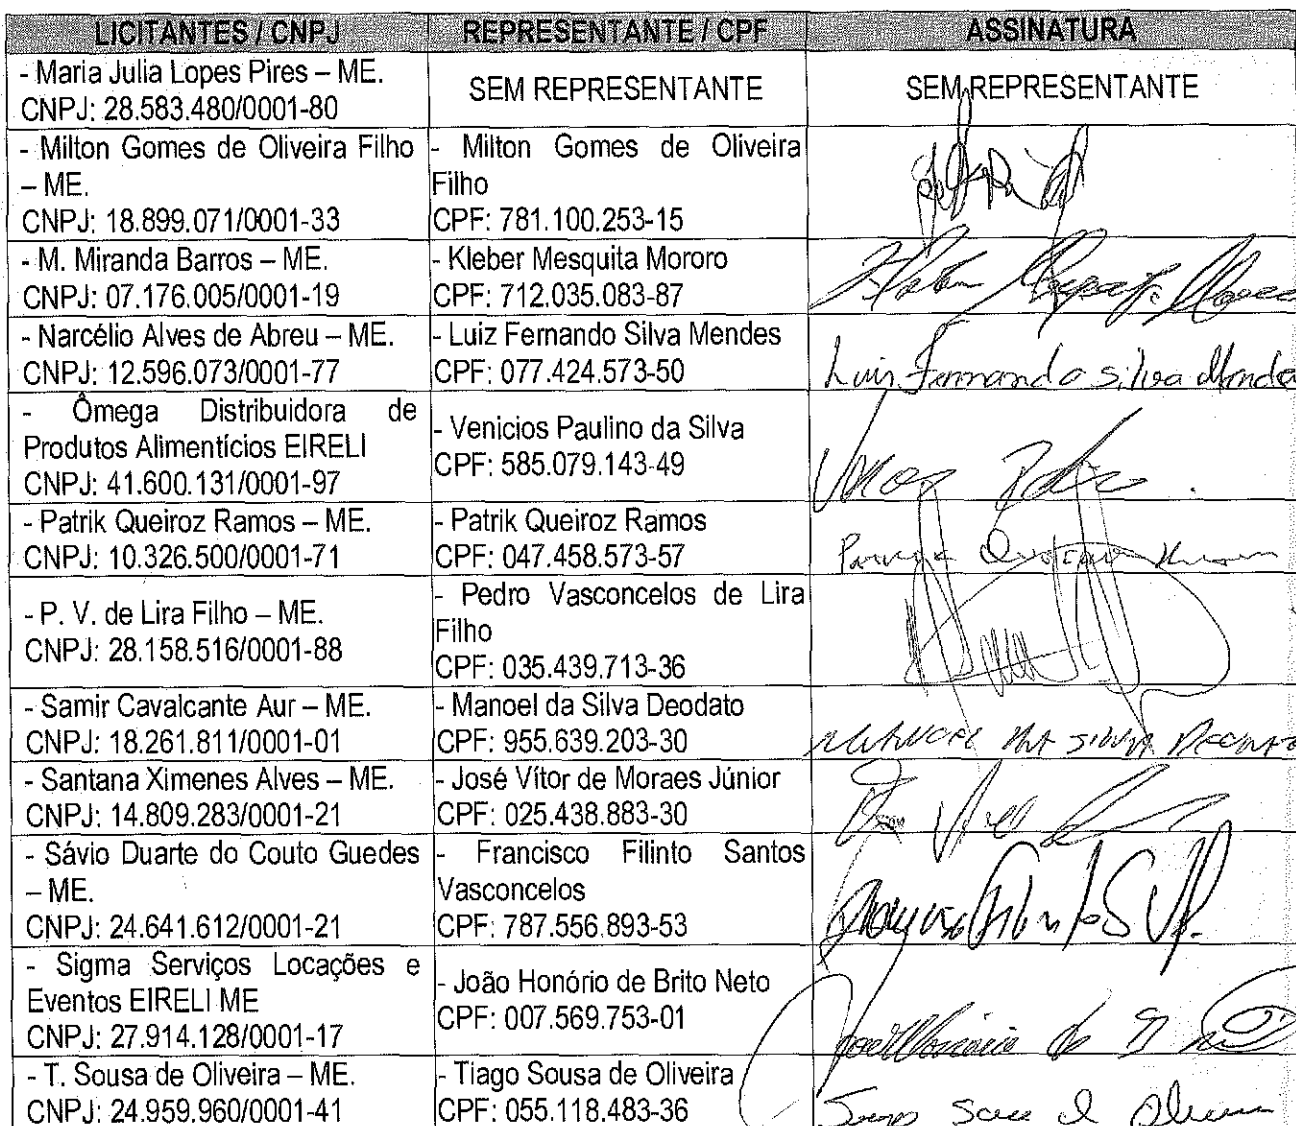 LICITANTES / CNPJ REPRESENTANTE / CPF ASSINATURA
- Maria Julia Lopes Pires – ME.
CNPJ: 28.583.480/0001-80
SEM REPRESENTANTE
SEM REPRESENTANTE
- Milton Gomes de Oliveira Filho
– ME.
CNPJ: 18.899.071/0001-33
- Milton Gomes de Oliveira
Filho
CPF: 781.100.253-15
- M. Miranda Barros – ME.
CNPJ: 07.176.005/0001-19
- Kleber Mesquita Mororo
CPF: 712.035.083-87
- Narcélio Alves de Abreu – ME.
CNPJ: 12.596.073/0001-77
- Luiz Fernando Silva Mendes
CPF: 077.424.573-50
Luiz Fernando silva Mendes
- Ômega Distribuidora de
Produtos Alimentícios EIRELI
CNPJ: 41.600.131/0001-97
- Venicios Paulino da Silva
CPF: 585.079.143-49
- Patrik Queiroz Ramos – ME.
CNPJ: 10.326.500/0001-71
- Patrik Queiroz Ramos
CPF: 047.458.573-57
- P. V. de Lira Filho – ME.
CNPJ: 28.158.516/0001-88
- Pedro Vasconcelos de Lira
Filho
CPF: 035.439.713-36
- Samir Cavalcante Aur – ME.
CNPJ: 18.261.811/0001-01
- Manoel da Silva Deodato
CPF: 955.639.203-30
MANOEL DA SILVA DEODATO
- Santana Ximenes Alves – ME.
CNPJ: 14.809.283/0001-21
- José Vítor de Moraes Júnior
CPF: 025.438.883-30
- Sávio Duarte do Couto Guedes
– ME.
CNPJ: 24.641.612/0001-21
- Francisco Filinto Santos
Vasconcelos
CPF: 787.556.893-53
- Sigma Serviços Locações e
Eventos EIRELI ME
CNPJ: 27.914.128/0001-17
- João Honório de Brito Neto
CPF: 007.569.753-01
- T. Sousa de Oliveira – ME.
CNPJ: 24.959.960/0001-41
- Tiago Sousa de Oliveira
CPF: 055.118.483-36